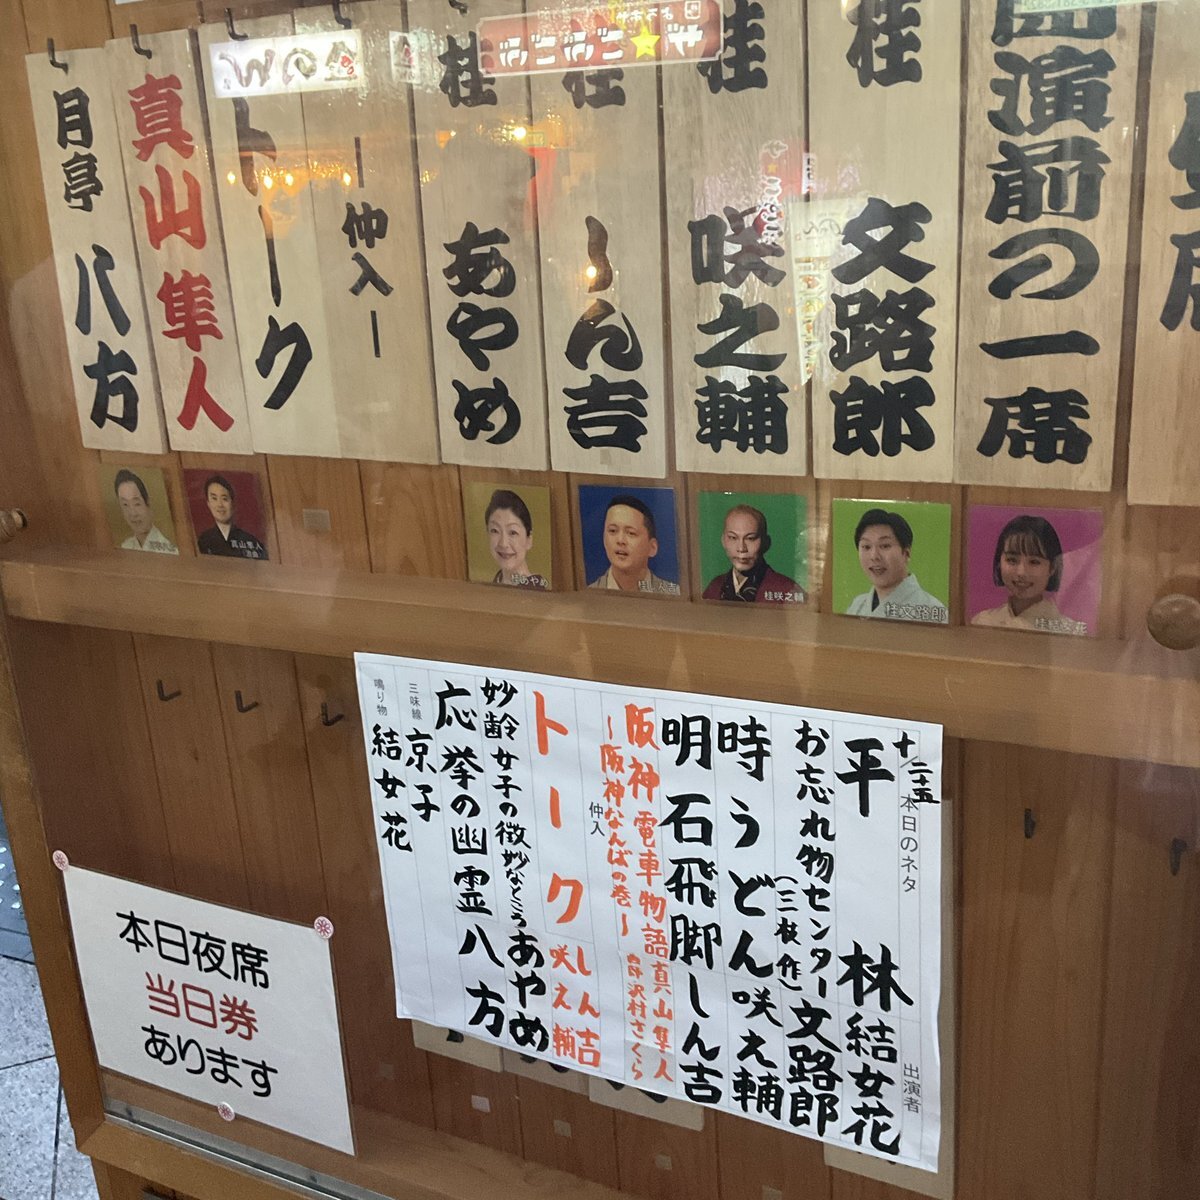 昼席
開演前の一席
桂 文路郎
桂 咲之輔
桂 しん吉
桂 あやめ
ー仲入ー
トーク
真山 隼人
月亭 八方
桂結女花
桂文路郎
桂咲之輔
桂しん吉
桂あやめ
真山隼人
十/二十五
本日のネタ
出演者
平林 結女花
お忘れ物センター(三枝作) 文路郎
時うどん 咲之輔
明石飛脚 しん吉
阪神電車物語 真山隼人
〜阪神なんばの巻〜 沢村さくら
仲入
トーク しん吉 咲之輔
妙齢女子の微妙なところ あやめ
応挙の幽霊 八方
三味線 京子
鳴り物 結女花
本日夜席
当日券
あります